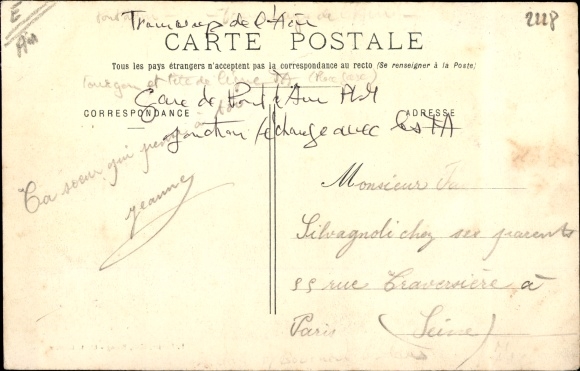 E
Ain
2118
Tramways de l'Ain
CARTE POSTALE
Tous les pays étrangers n'acceptent pas la correspondance au recto (Se renseigner à la Poste)
Fourgon et tête de ligne TA
Gare de Pont d'Ain PLM
CORRESPONDANCE
ADRESSE
jonction échange avec les TA
Ta sœur qui pense à toi
Jeanne
Monsieur
Silvagnoli chez ses parents
55 rue Traversière à
Paris (Seine)